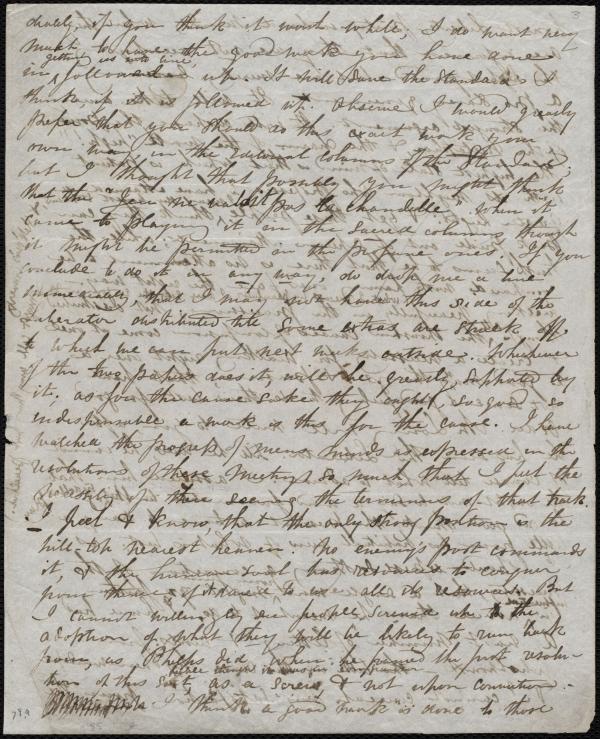 3
diately, if you think it worth while. I do want very
much to have the good work you have done
getting us into line,
in, followed up. It will save the Standard I
think if it is followed up. Observe I would greatly
prefer that you should do this exact work your
own way in the editorial columns of the Standard,
but I thought that possibly you might think
that the "Jeu ne valait pas la chandelle" when it
came to playing it in the sacred columns though
it might be permitted in the profane ones. If you
conclude to do it in any way, do drop me a line
immediately, that I may not have this side of the
Liberator distributed till some extras are struck off
to which we can put next week's outside. Whichever
of the two papers does it, will be greatly supported by
it, as for the cause sake they ought, so good so
indispensable a work is this for the cause. I have
watched the progress of mens minds as expressed in the
resolutions of these meetings so much that I feel the
necessity of their seeing the terminus of that track.
I feel & know that the only strong position is the
hill-top nearest heaven. No enemy's post commands
it, & the human soul has resources to conquer
from thence, if it dared to use all its resources. But
I cannot willingly see people screwed up to the
adoption of what they will be likely to run back
from, as Phelps did when he framed the first resolu-
tion of this sort, as a screw & not upon conviction.
I think a good work is done to those
789